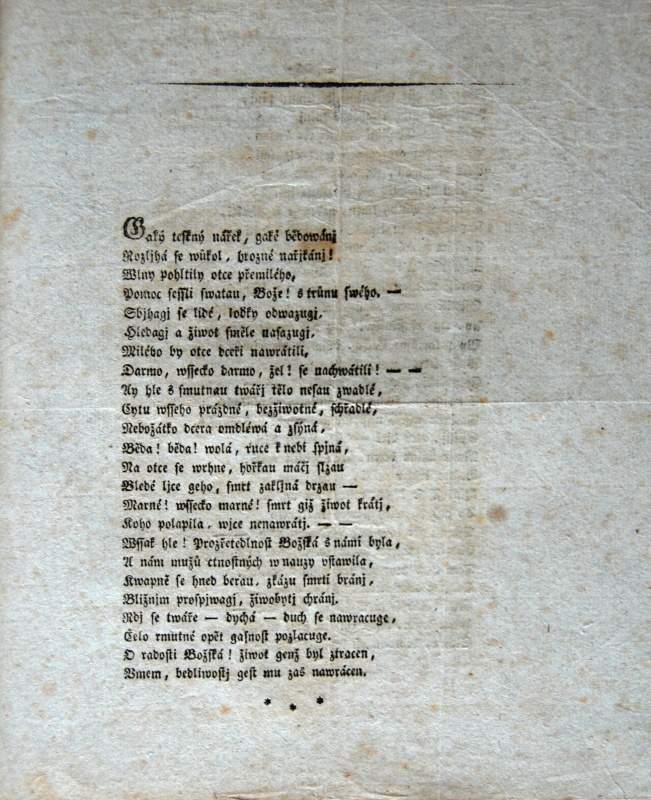 Gaký teskný nářek, gaké bědowánj
Rozljhá se wůkol, hrozné nařjkánj!
Wlny pohltily otce přemilého,
Pomoc sessli swatau, Bože! s trůnu swého. —
Sbjhagj se lidé, loďky odwazugj,
Hledagj a žiwot směle nasazugj,
Milého by otce dceři nawrátili,
Darmo, wssecko darmo, žel! se nachwátili! — —
Ay hle s smutnau twářj tělo nesau zwadlé,
Cytu wsseho prázdné, bezžiwotné, schřadlé,
Nebožátko dcera omdléwá a zsýná,
Běda! běda! wolá, ruce k nebi spjná,
Na otce se wrhne, hořkau máčj slzau
Bledé ljce geho, smrt zakljná drzau —
Marné! wssecko marné! smrt giž žiwot krátj,
Koho polapila, wjce nenawrátj. — —
Wssak hle! Prozřetedlnost Božská s námi byla,
A nám mužů ctnostných w nauzy vstawila,
Kwapně se hned berau, zkázu smrti bránj,
Bližnjm prospjwagj, žiwobytj chránj.
Rdj se twáře — dychá — duch se nawracuge,
Čelo rmutné opět gasnost pozlacuge.
O radosti Božská! žiwot genž byl ztracen,
Vmem, bedliwostj gest mu zas nawrácen.
* * *